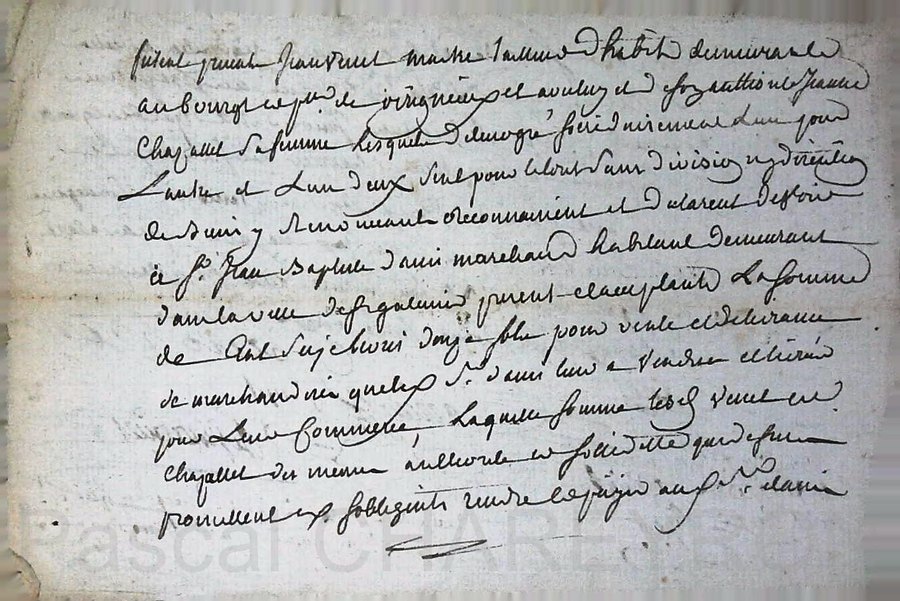 fut présent Jean Venet maître tailleur d'habits demeurant
au bourg et p^sse de et de son authorité Jeanne
Chapallet sa femme lesquels de leur gré solidairement l'un pour
l'autre et l'un d'eux seul pour le tout sans division ny
de biens y renonceant reconnaissent et déclarent devoir
à s^r Jean Baptiste marchand habitant demeurant
dans la ville de S^t Galmier présent et acceptant la somme
de Cent livres sols pour vente et délivrance
de marchandises que led s^r leur a vendu et livré
pour leur Commerce, laquelle somme lesd Venet et
Chapallet de même authorité et solidité que dessus
promettent et s'obligent rendre et payer aud s^r
Pascal